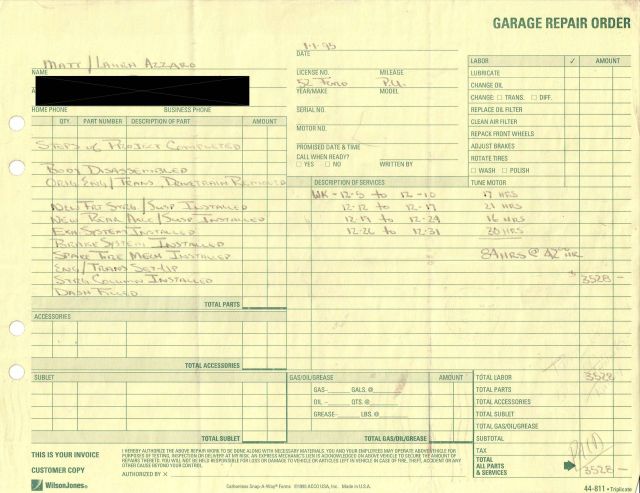 GARAGE REPAIR ORDER
1-1-95
DATE
MATT / LAURA AZZARO
NAME
HOME PHONE BUSINESS PHONE
LICENSE NO. MILEAGE
52 FORD P.U.
YEAR/MAKE MODEL
SERIAL NO.
MOTOR NO.
PROMISED DATE & TIME
CALL WHEN READY?
☐ YES ☐ NO WRITTEN BY
LABOR ✓ AMOUNT
LUBRICATE
CHANGE OIL
CHANGE: ☐ TRANS. ☐ DIFF.
REPLACE OIL FILTER
CLEAN AIR FILTER
REPACK FRONT WHEELS
ADJUST BRAKES
ROTATE TIRES
☐ WASH ☐ POLISH
TUNE MOTOR
QTY. PART NUMBER DESCRIPTION OF PART AMOUNT
STEPS OF PROJECT COMPLETED
BODY DISASSEMBLED
ORIG ENG/TRANS, DRIVETRAIN REMOVED
NEW FRT STRG/SUSP INSTALLED
NEW REAR AXLE/SUSP INSTALLED
EXH SYSTEM INSTALLED
BRAKE SYSTEM INSTALLED
SPARE TIRE MECH INSTALLED
ENG/TRANS SET-UP
STRG COLUMN INSTALLED
DASH FILLED
TOTAL PARTS
DESCRIPTION OF SERVICES
WK - 12-5 to 12-10 17 HRS
12-12 to 12-17 21 HRS
12-19 to 12-24 16 HRS
12-26 to 12-31 30 HRS
84 HRS @ 42.00 HR
$ 3528 -
ACCESSORIES
TOTAL ACCESSORIES
SUBLET
TOTAL SUBLET
GAS/OIL/GREASE AMOUNT
GAS- GALS. @
OIL - QTS. @
GREASE- LBS. @
TOTAL GAS/OIL/GREASE
TOTAL LABOR 3528 -
TOTAL PARTS
TOTAL ACCESSORIES
TOTAL SUBLET
TOTAL GAS/OIL/GREASE
SUBTOTAL
TAX
TOTAL
ALL PARTS
& SERVICES 3528 -
THIS IS YOUR INVOICE
CUSTOMER COPY
I HEREBY AUTHORIZE THE ABOVE REPAIR WORK TO BE DONE ALONG WITH NECESSARY MATERIALS. YOU AND YOUR EMPLOYEES MAY OPERATE ABOVE VEHICLE FOR
PURPOSES OF TESTING, INSPECTION OR DELIVERY AT MY RISK. AN EXPRESS MECHANIC'S LIEN IS ACKNOWLEDGED ON ABOVE VEHICLE TO SECURE THE AMOUNT OF
REPAIRS THERETO. YOU WILL NOT BE HELD RESPONSIBLE FOR LOSS OR DAMAGE TO VEHICLE OR ARTICLES LEFT IN VEHICLE IN CASE OF FIRE, THEFT, ACCIDENT OR ANY
OTHER CAUSE BEYOND YOUR CONTROL.
AUTHORIZED BY
WilsonJones
Carbonless Snap-A-Way® Forms
ACCO USA, Inc. Made in U.S.A.
44-811 • Triplicate